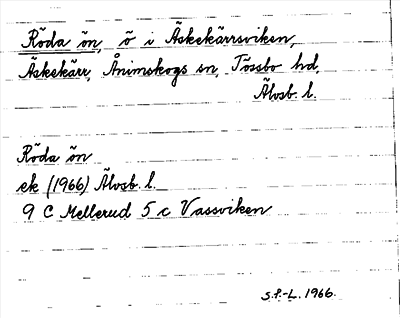 Röda ön, ö i Äskekärrsviken,
Äskekärr, Ånimskogs sn, Tössbo hd,
Älvsb. l.
Röda ön
ek (1966) Älvsb. l.
9 C Mellerud 5 c Vassviken
S.F.-L. 1966.